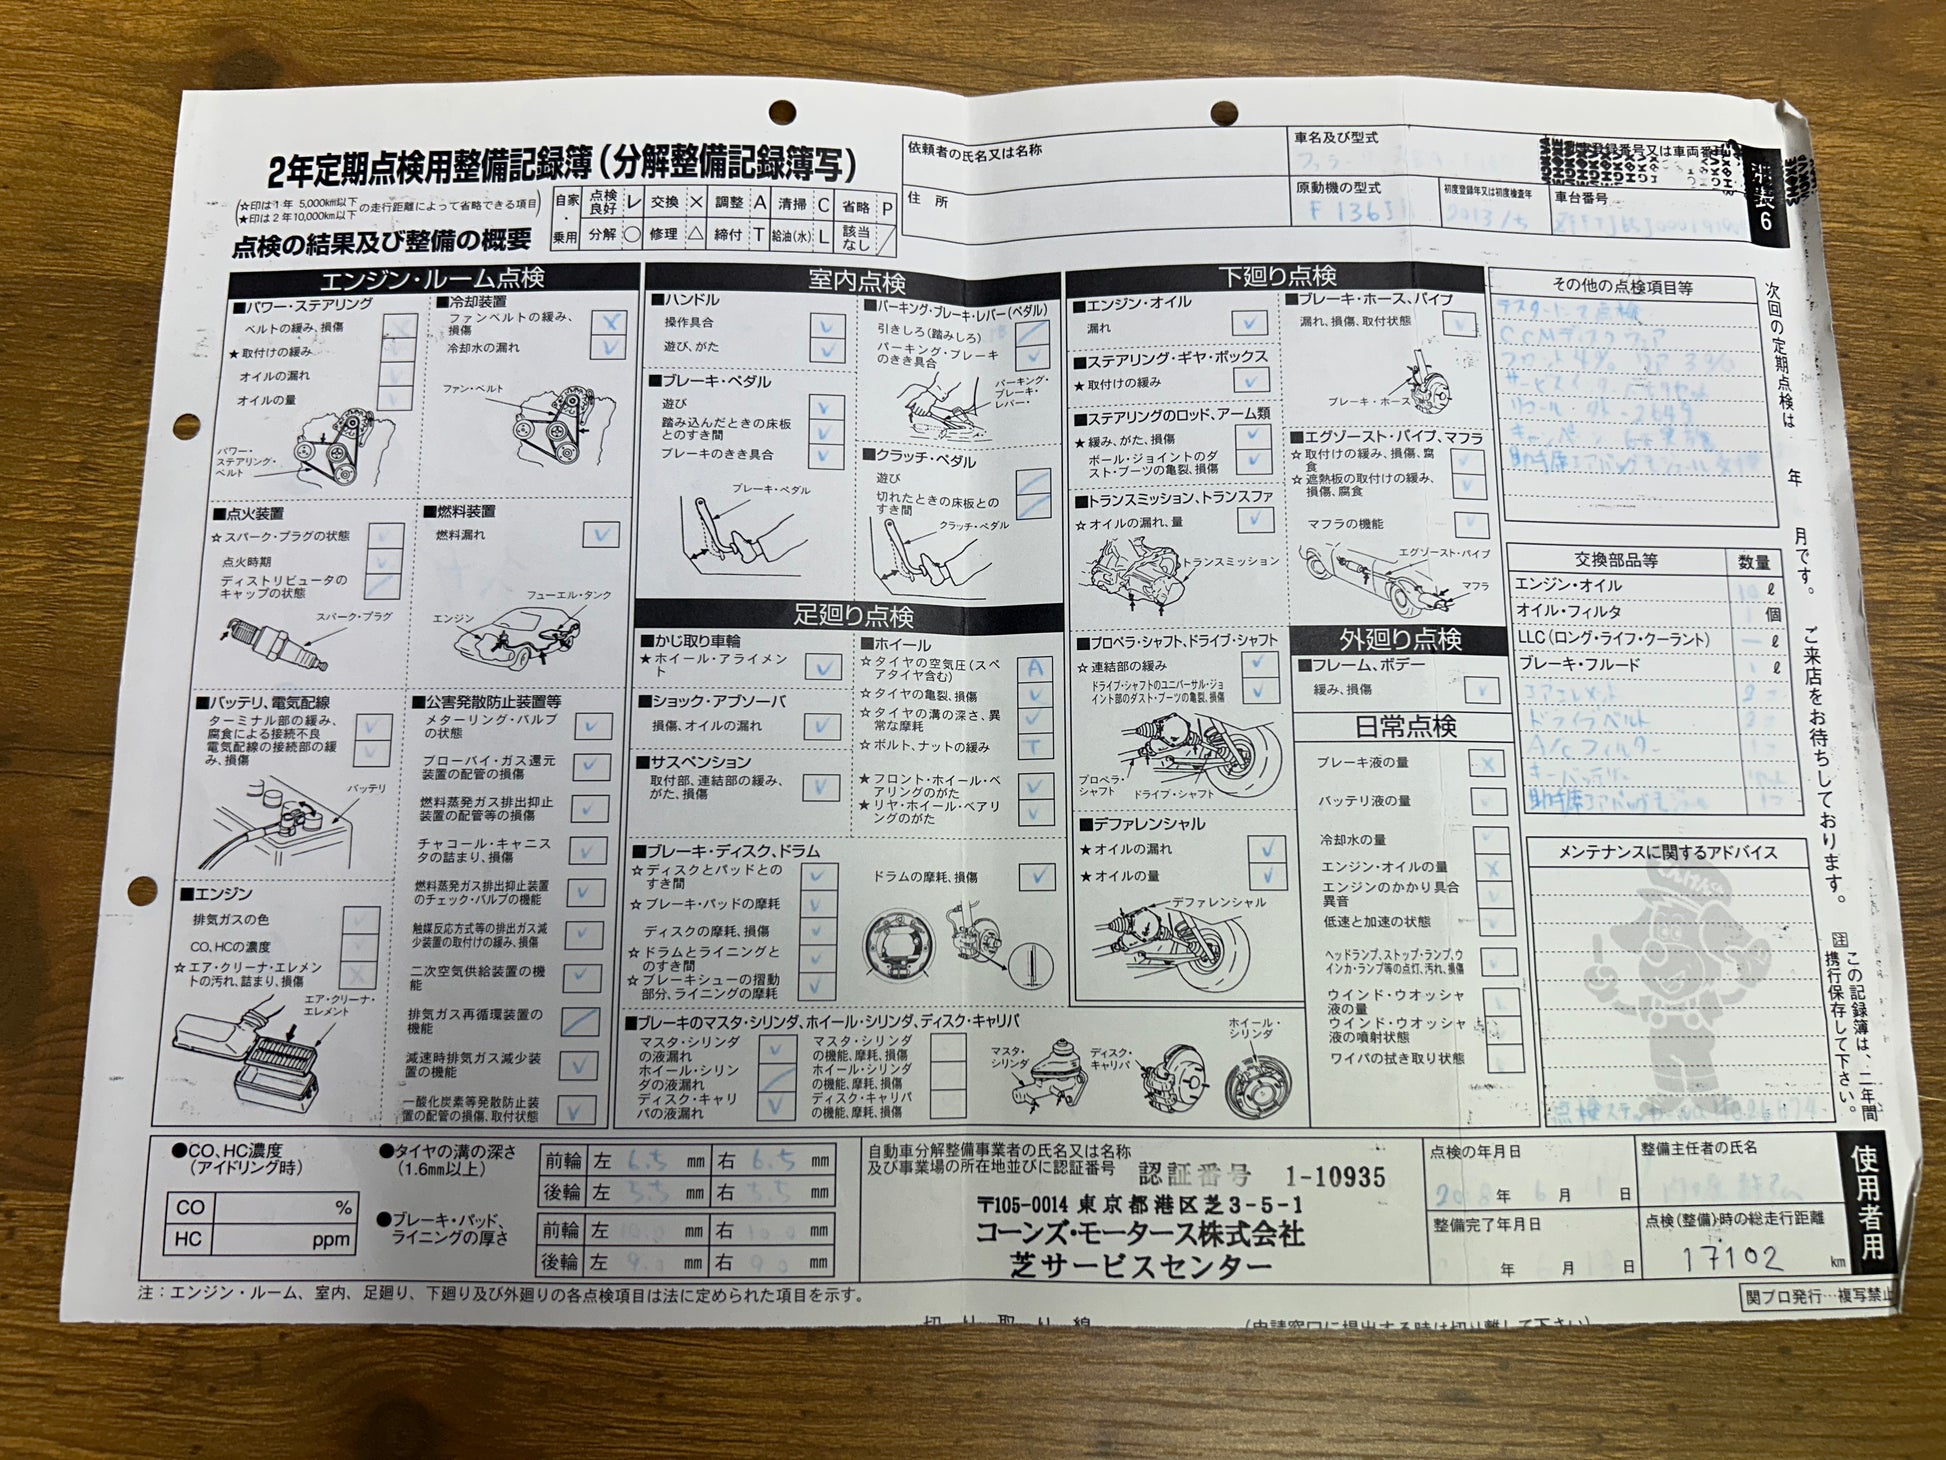 2年定期点検用整備記録簿(分解整備記録簿写)
☆印は1年 5,000km以下
★印は2年10,000km以下
の走行距離によって省略できる項目
点検の結果及び整備の概要
自家・乗用
点検良好 レ 交換 × 調整 A 清掃 C 省略 P
分解 ○ 修理 △ 締付 T 給油(水) L 該当なし /
依頼者の氏名又は名称
住所
車名及び型式
原動機の型式
初度登録年又は初度検査年
2013/5
車台番号
別表6
エンジン・ルーム点検
■パワー・ステアリング
ベルトの緩み、損傷
★取付けの緩み
オイルの漏れ
オイルの量
パワー・ステアリング・ベルト
■冷却装置
ファンベルトの緩み、損傷
冷却水の漏れ
ファン・ベルト
■点火装置
☆スパーク・プラグの状態
点火時期
ディストリビュータのキャップの状態
スパーク・プラグ
■燃料装置
燃料漏れ
フューエル・タンク
エンジン
■バッテリ、電気配線
ターミナル部の緩み、腐食による接続不良
電気配線の接続部の緩み、損傷
バッテリ
■エンジン
排気ガスの色
CO、HCの濃度
☆エア・クリーナ・エレメントの汚れ、詰まり、損傷
エア・クリーナ・エレメント
■公害発散防止装置等
メターリング・バルブの状態
ブローバイ・ガス還元装置の配管の損傷
燃料蒸発ガス排出抑止装置の配管等の損傷
チャコール・キャニスタの詰まり、損傷
燃料蒸発ガス排出抑止装置のチェック・バルブの機能
触媒反応方式等の排出ガス減少装置の取付けの緩み、損傷
二次空気供給装置の機能
排気ガス再循環装置の機能
減速時排気ガス減少装置の機能
一酸化炭素等発散防止装置の配管の損傷、取付状態
室内点検
■ハンドル
操作具合
遊び、がた
■ブレーキ・ペダル
遊び
踏み込んだときの床板とのすき間
ブレーキのきき具合
ブレーキ・ペダル
■パーキング・ブレーキ・レバー(ペダル)
引きしろ(踏みしろ)
パーキング・ブレーキのきき具合
パーキング・ブレーキ・レバー
■クラッチ・ペダル
遊び
切れたときの床板とのすき間
クラッチ・ペダル
足廻り点検
■かじ取り車輪
★ホイール・アライメント
■ショック・アブソーバ
損傷、オイルの漏れ
■サスペンション
取付部、連結部の緩み、がた、損傷
■ホイール
☆タイヤの空気圧(スペアタイヤ含む) A
☆タイヤの亀裂、損傷
☆タイヤの溝の深さ、異常な摩耗
☆ボルト、ナットの緩み T
★フロント・ホイール・ベアリングのがた
★リヤ・ホイール・ベアリングのがた
■ブレーキ・ディスク、ドラム
☆ディスクとパッドとのすき間
☆ブレーキ・パッドの摩耗
ディスクの摩耗、損傷
☆ドラムとライニングとのすき間
☆ブレーキシューの摺動部分、ライニングの摩耗
ドラムの摩耗、損傷
■ブレーキのマスタ・シリンダ、ホイール・シリンダ、ディスク・キャリパ
マスタ・シリンダの液漏れ
ホイール・シリンダの液漏れ
ディスク・キャリパの液漏れ
マスタ・シリンダの機能、摩耗、損傷
ホイール・シリンダの機能、摩耗、損傷
ディスク・キャリパの機能、摩耗、損傷
マスタ・シリンダ
ディスク・キャリパ
ホイール・シリンダ
下廻り点検
■エンジン・オイル
漏れ
■ステアリング・ギヤ・ボックス
★取付けの緩み
■ステアリングのロッド、アーム類
★緩み、がた、損傷
ボール・ジョイントのダスト・ブーツの亀裂、損傷
■トランスミッション、トランスファ
☆オイルの漏れ、量
トランスミッション
■プロペラ・シャフト、ドライブ・シャフト
☆連結部の緩み
ドライブ・シャフトのユニバーサル・ジョイント部のダスト・ブーツの亀裂、損傷
プロペラ・シャフト
ドライブ・シャフト
■デファレンシャル
★オイルの漏れ
★オイルの量
デファレンシャル
■ブレーキ・ホース、パイプ
漏れ、損傷、取付状態
ブレーキ・ホース
■エグゾースト・パイプ、マフラ
☆取付けの緩み、損傷、腐食
☆遮熱板の取付けの緩み、損傷、腐食
マフラの機能
エグゾースト・パイプ
マフラ
外廻り点検
■フレーム、ボデー
緩み、損傷
日常点検
ブレーキ液の量
バッテリ液の量
冷却水の量
エンジン・オイルの量
エンジンのかかり具合異音
低速と加速の状態
ヘッドランプ、ストップ・ランプ、ウインカ・ランプ等の点灯、汚れ、損傷
ウインド・ウオッシャ液の量
ウインド・ウオッシャ液の噴射状態
ワイパの拭き取り状態
その他の点検項目等
テスターにて点検
交換部品等 数量
エンジン・オイル 10 ℓ
オイル・フィルタ 個
LLC(ロング・ライフ・クーラント) ー ℓ
ブレーキ・フルード 1 ℓ
エアエレメント
ドライブベルト
A/Cフィルター
キーバッテリー
助手席エアバッグモジュール
メンテナンスに関するアドバイス
次回の定期点検は 年 月です。ご来店をお待ちしております。
注 この記録簿は、二年間携行保存して下さい。
使用者用
●CO、HC濃度
(アイドリング時)
CO %
HC ppm
●タイヤの溝の深さ
(1.6mm以上)
前輪 左 6.5 mm 右 6.5 mm
後輪 左 5.5 mm 右 5.5 mm
●ブレーキ・パッド、ライニングの厚さ
前輪 左 10.0 mm 右 10.0 mm
後輪 左 9.0 mm 右 9.0 mm
自動車分解整備事業者の氏名又は名称
及び事業場の所在地並びに認証番号
認証番号 1-10935
〒105-0014 東京都港区芝3-5-1
コーンズ・モータース株式会社
芝サービスセンター
点検の年月日
年 6 月 日
整備完了年月日
年 月 日
整備主任者の氏名
点検(整備)時の総走行距離
17102 km
注:エンジン・ルーム、室内、足廻り、下廻り及び外廻りの各点検項目は法に定められた項目を示す。
関プロ発行…複写禁止
切り取り線
(申請窓口に提出する時は切り離して下さい)